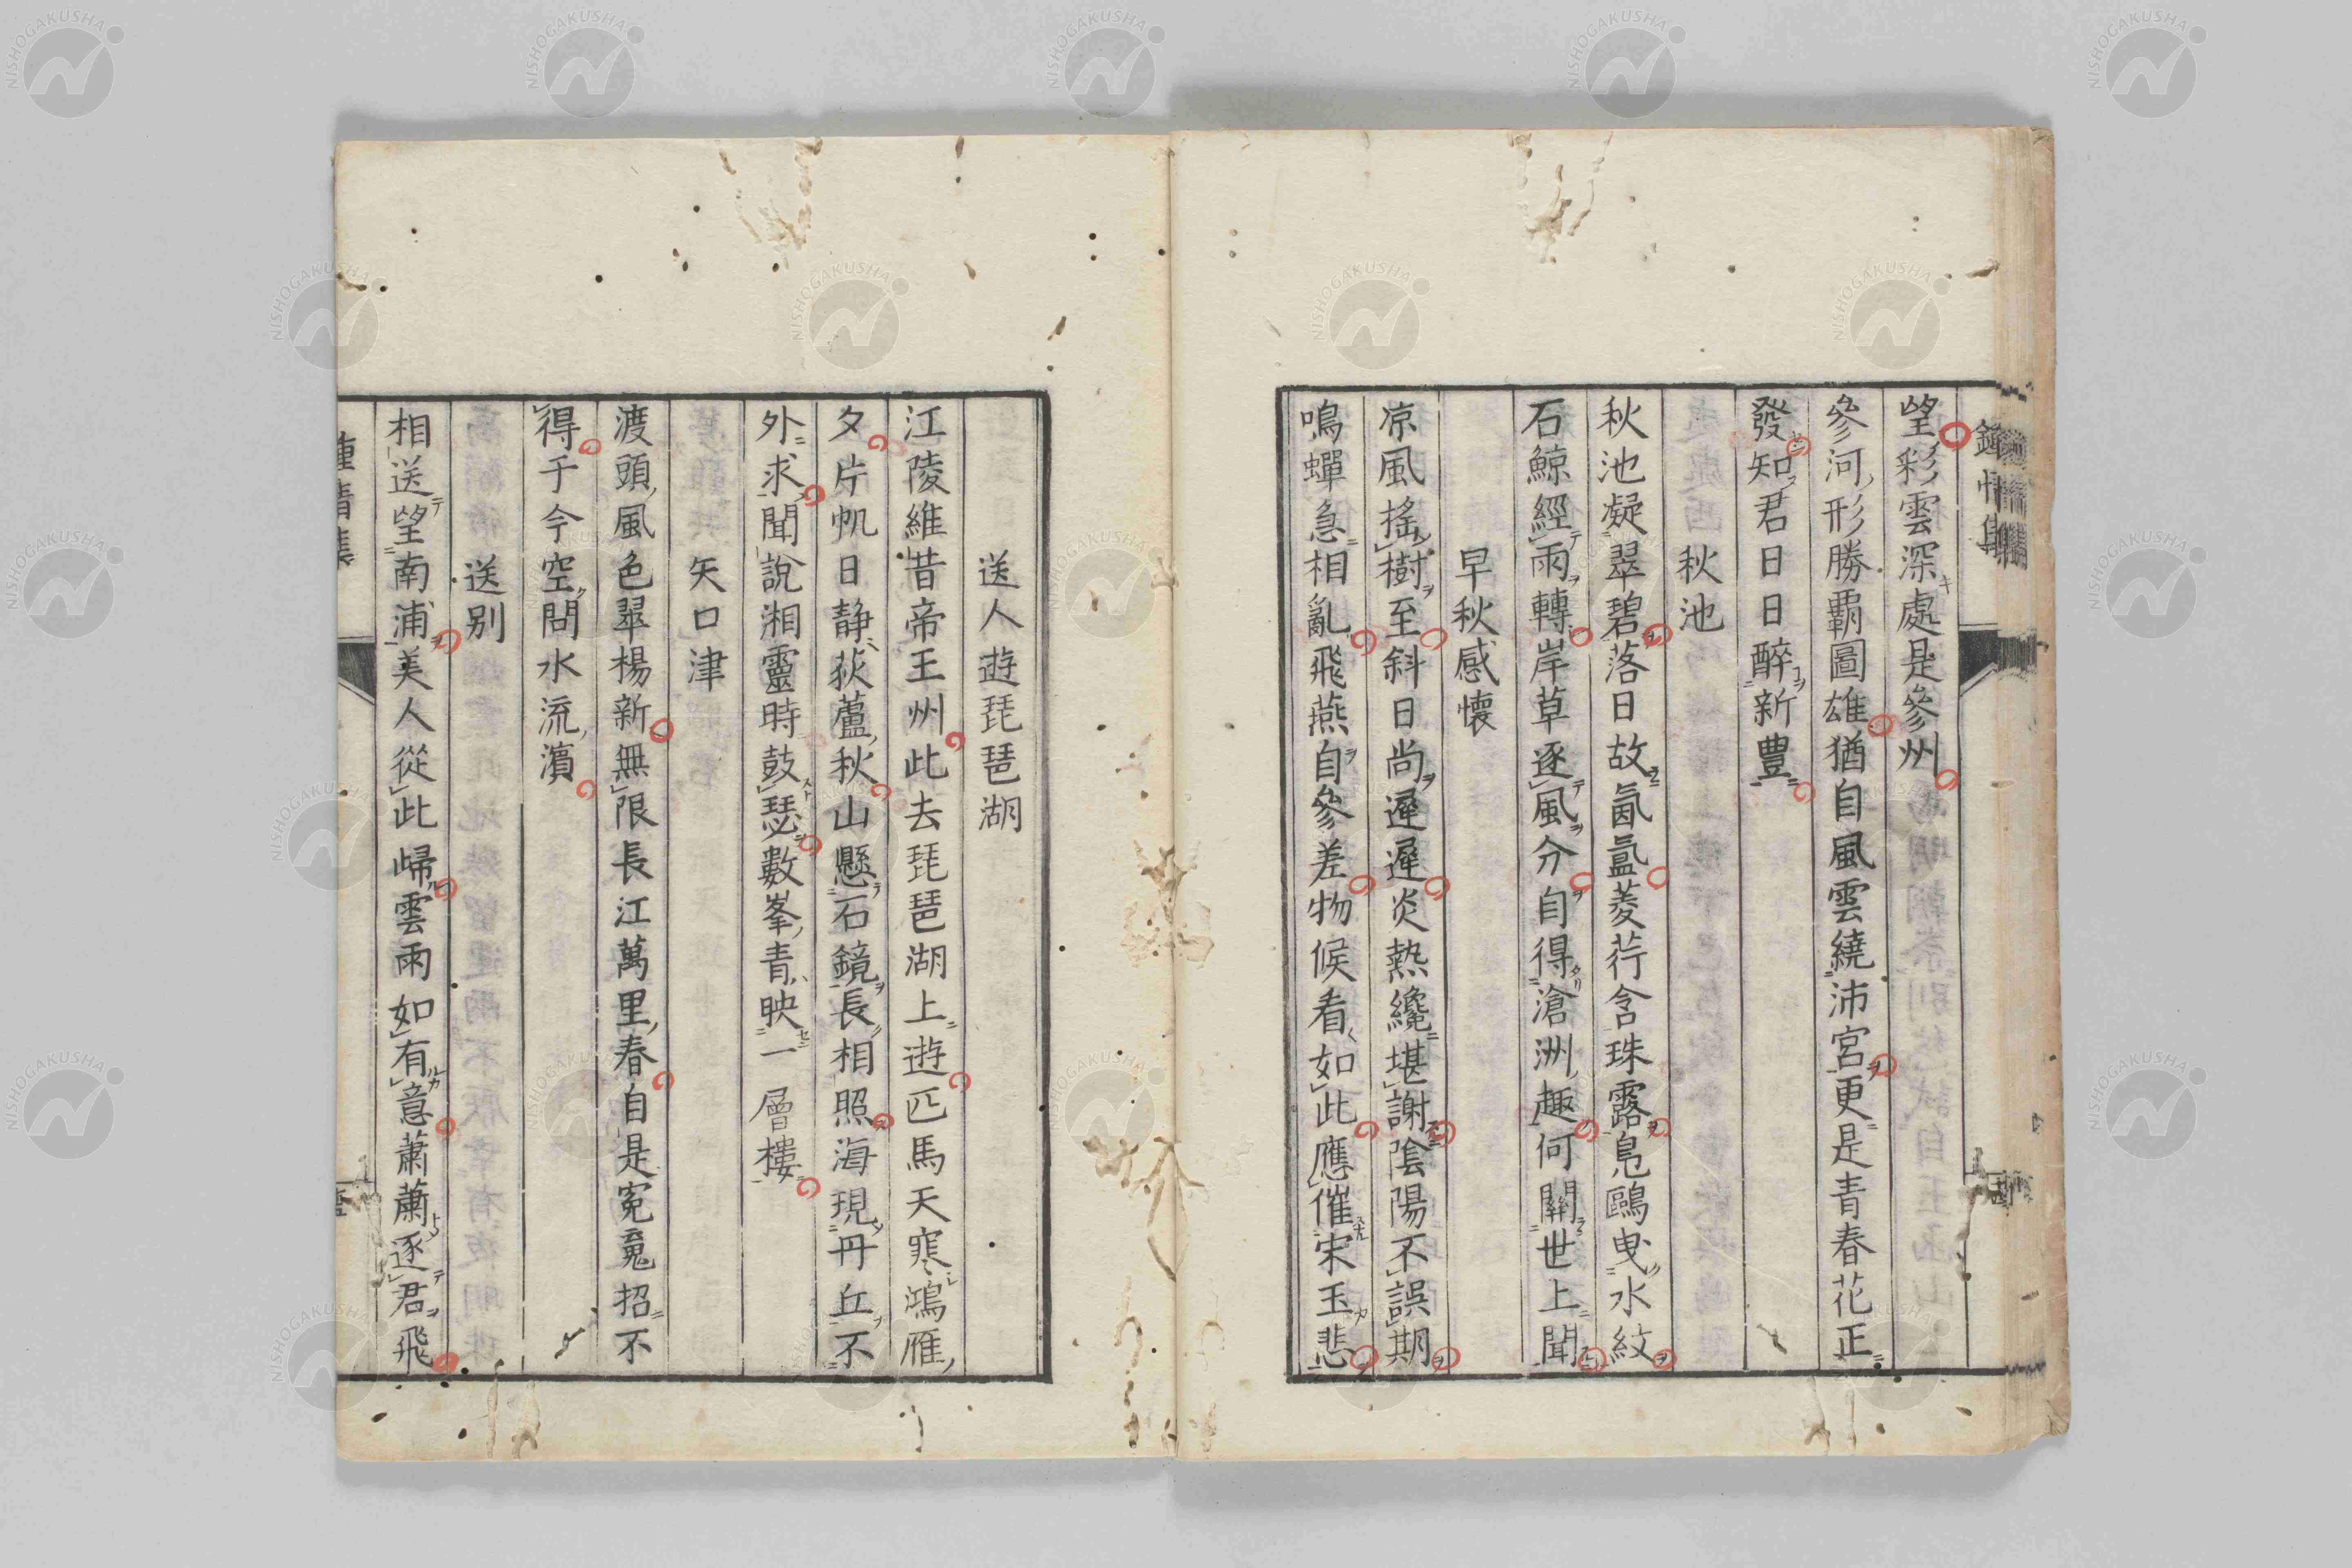 鍾情集
望彩雲深處是參州
參河形勝覇圖雄猶自風雲繞沛宮更是青春花正
發知君日日醉新豊
秋池
秋池凝翠碧落日故氤氳菱荇含珠露鳬鷗曳水紋
石鯨經雨轉岸草逐風分自得滄洲趣何關世上聞
早秋感懷
凉風搖樹至斜日尚遲遲炎熱纔堪謝陰陽不誤期
鳴蟬急相亂飛燕自參差物候看如此應催宋玉悲
送人遊琵琶湖
江陵維昔帝王州此去琵琶湖上遊匹馬天寒鴻雁
夕片帆日静荻蘆秋山懸石鏡長相照海現丹丘不
外求聞說湘靈時鼓瑟數峯青映一層樓
矢口津
渡頭風色翠楊新無限長江萬里春自是寃䰟招不
得于今空問水流濵
送別
相送望南浦美人從此歸雲雨如有意蕭蕭逐君飛
鍾情集
NISHOGAKUSHA